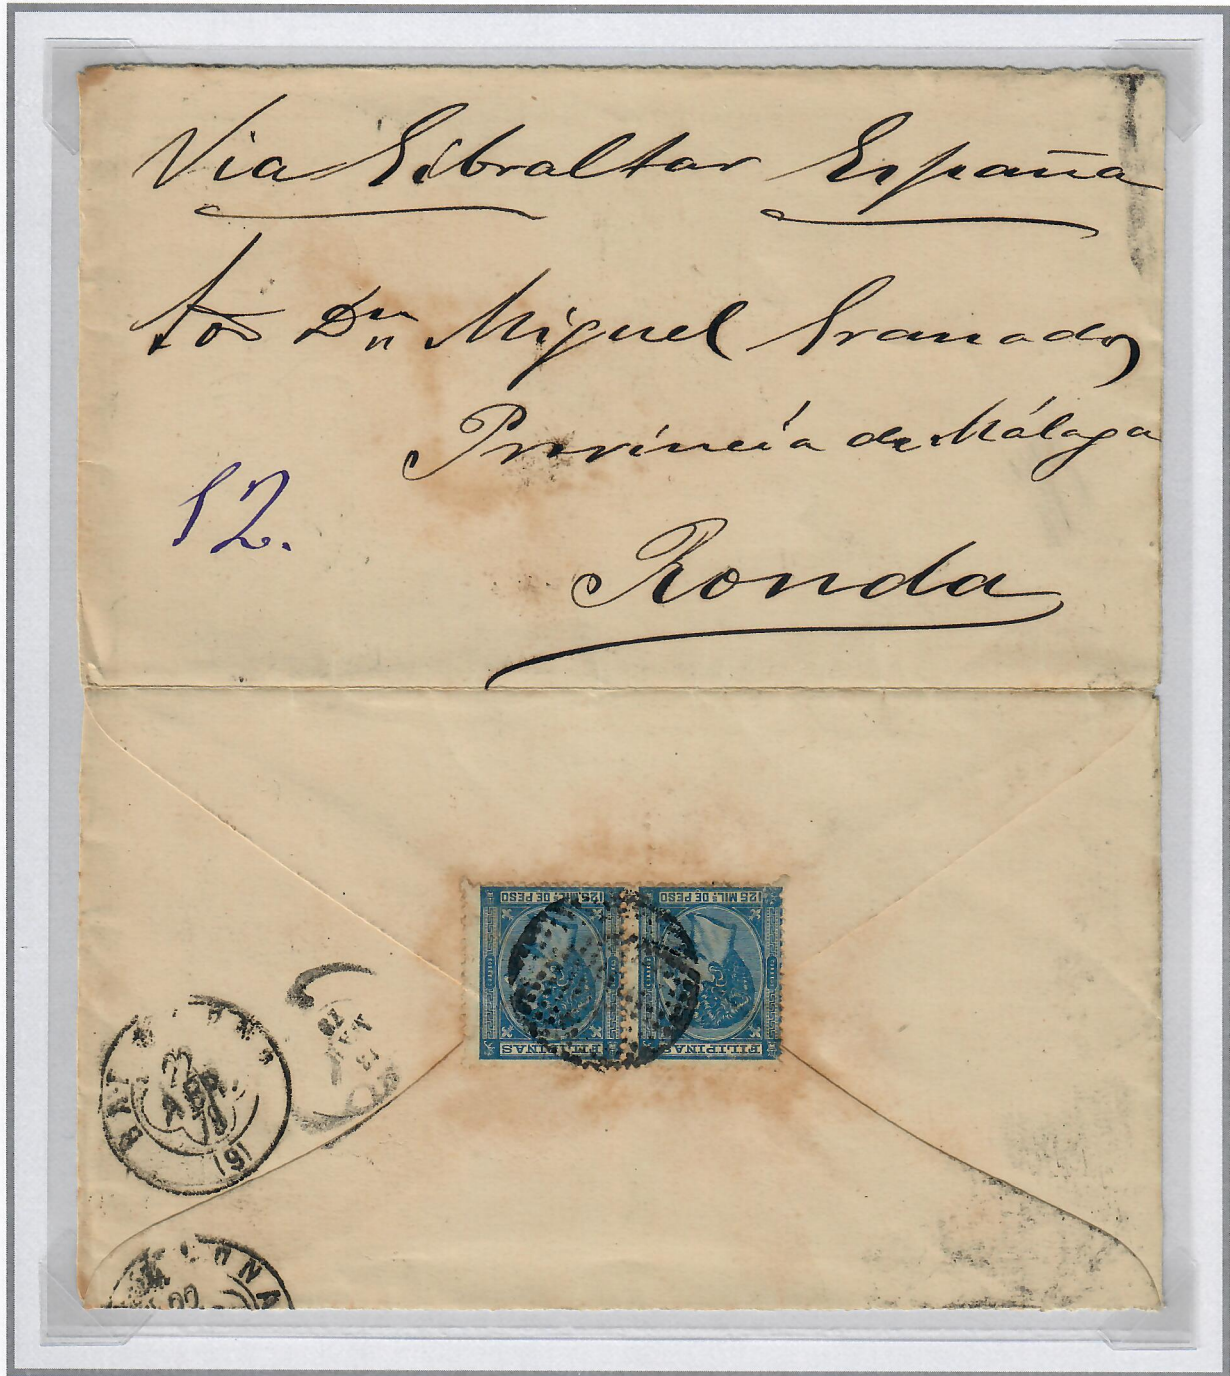 Via Gibraltar España
Dn Miguel Granados
Provincia de Málaga
12.
Ronda
125 MIL.S DE PESO
125 MIL.S DE PESO
FILIPINAS
FILIPINAS
22
ABR
78
(9)